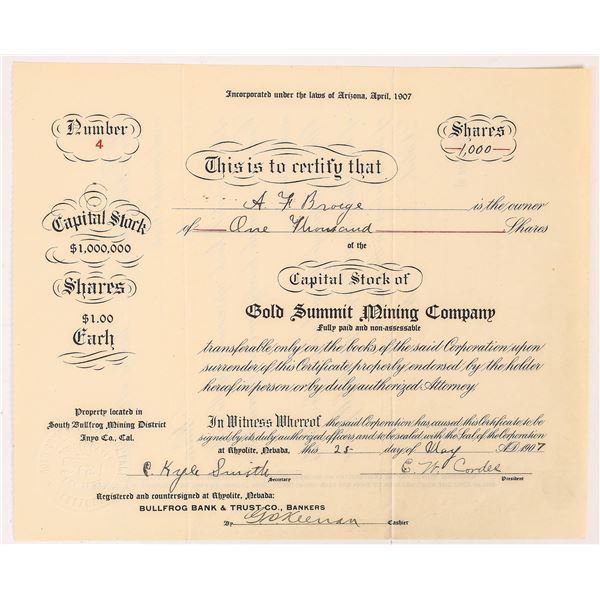 Incorporated under the laws of Arizona, April, 1907
Number
4
Shares
1,000
This is to certify that
A F Broege is the owner
of One Thousand Shares
of the
Capital Stock
$1,000,000
Shares
$1.00
Each
Capital Stock of
Gold Summit Mining Company
Fully paid and non-assessable
transferable only on the books of the said Corporation upon
surrender of this Certificate properly endorsed by the holder
hereof in person or by duly authorized Attorney
Property located in
South Bullfrog Mining District
Inyo Co., Cal.
In Witness Whereof, the said Corporation has caused this Certificate to be
signed by its duly authorized officers, and to be sealed with the Seal of the Corporation
at Rhyolite, Nevada, this 25 day of May A.D. 1907
C Kyle Smith
Secretary
E. W. Cordes
President
Registered and countersigned at Rhyolite, Nevada:
BULLFROG BANK & TRUST CO., BANKERS
By Keenan Cashier